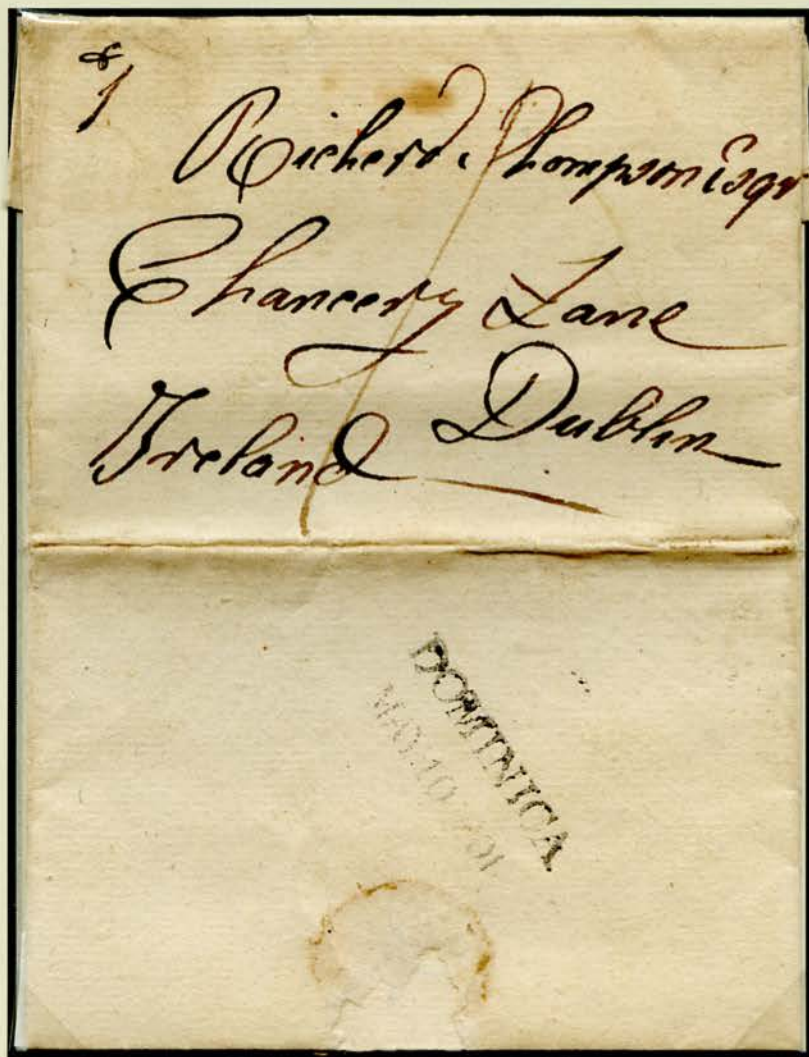 1
Richerd Thompson Esqr
Chancery Lane
Dublin
Ireland
DOMINICA
MAY.10